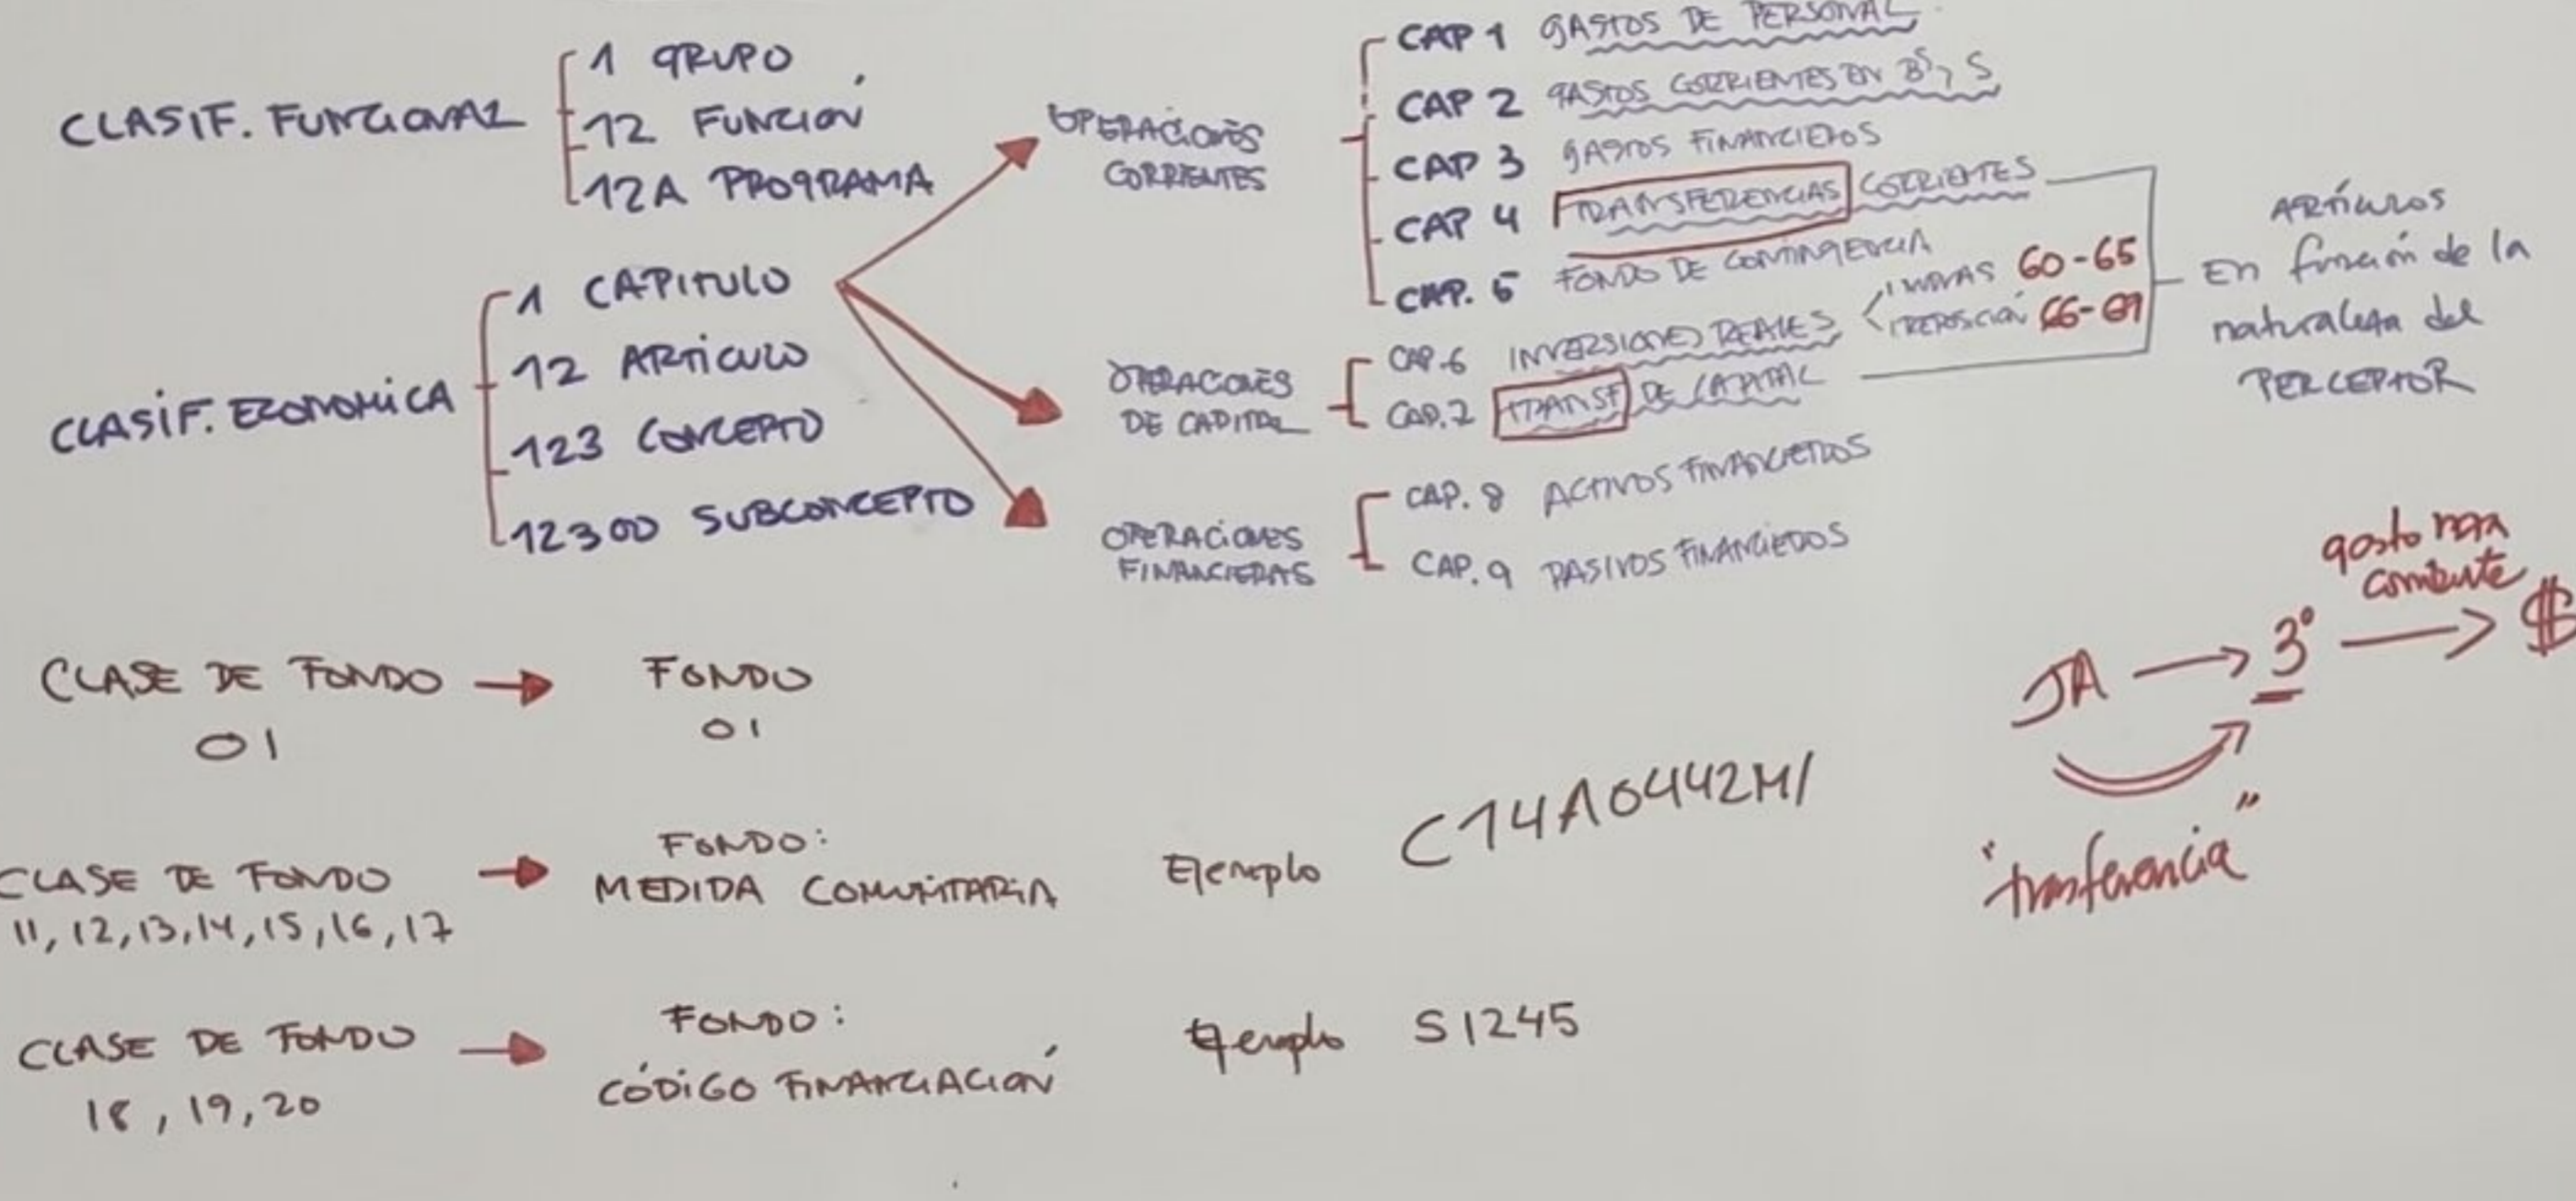 CLASIF. FUNCIONAL
1 GRUPO
12 FUNCIÓN
12A PROGRAMA
CLASIF. ECONOMICA
1 CAPITULO
12 ARTICULO
123 CONCEPTO
12300 SUBCONCEPTO
OPERACIONES
CORRIENTES
CAP 1 GASTOS DE PERSONAL
CAP 2 GASTOS CORRIENTES EN Bˢ y S
CAP 3 GASTOS FINANCIEROS
CAP 4 TRANSFERENCIAS CORRIENTES
CAP. 5 FONDO DE CONTINGENCIA
OPERACIONES
DE CAPITAL
CAP.6 INVERSIONES REALES
NUEVAS 60-65
REPOSICIÓN 66-69
CAP.7 TRANSF DE CAPITAL
ARTÍCULOS
En función de la
naturaleza del
PERCEPTOR
OPERACIONES
FINANCIERAS
CAP. 8 ACTIVOS FINANCIEROS
CAP. 9 PASIVOS FINANCIEROS
CLASE DE FONDO
01
FONDO
01
CLASE DE FONDO
11, 12, 13, 14, 15, 16, 17
FONDO:
MEDIDA COMUNITARIA
Ejemplo C14A0442M/
CLASE DE FONDO
18, 19, 20
FONDO:
CÓDIGO FINANCIACIÓN
Ejemplo S1245
JA
3º
gasto
$
"trasferencia"